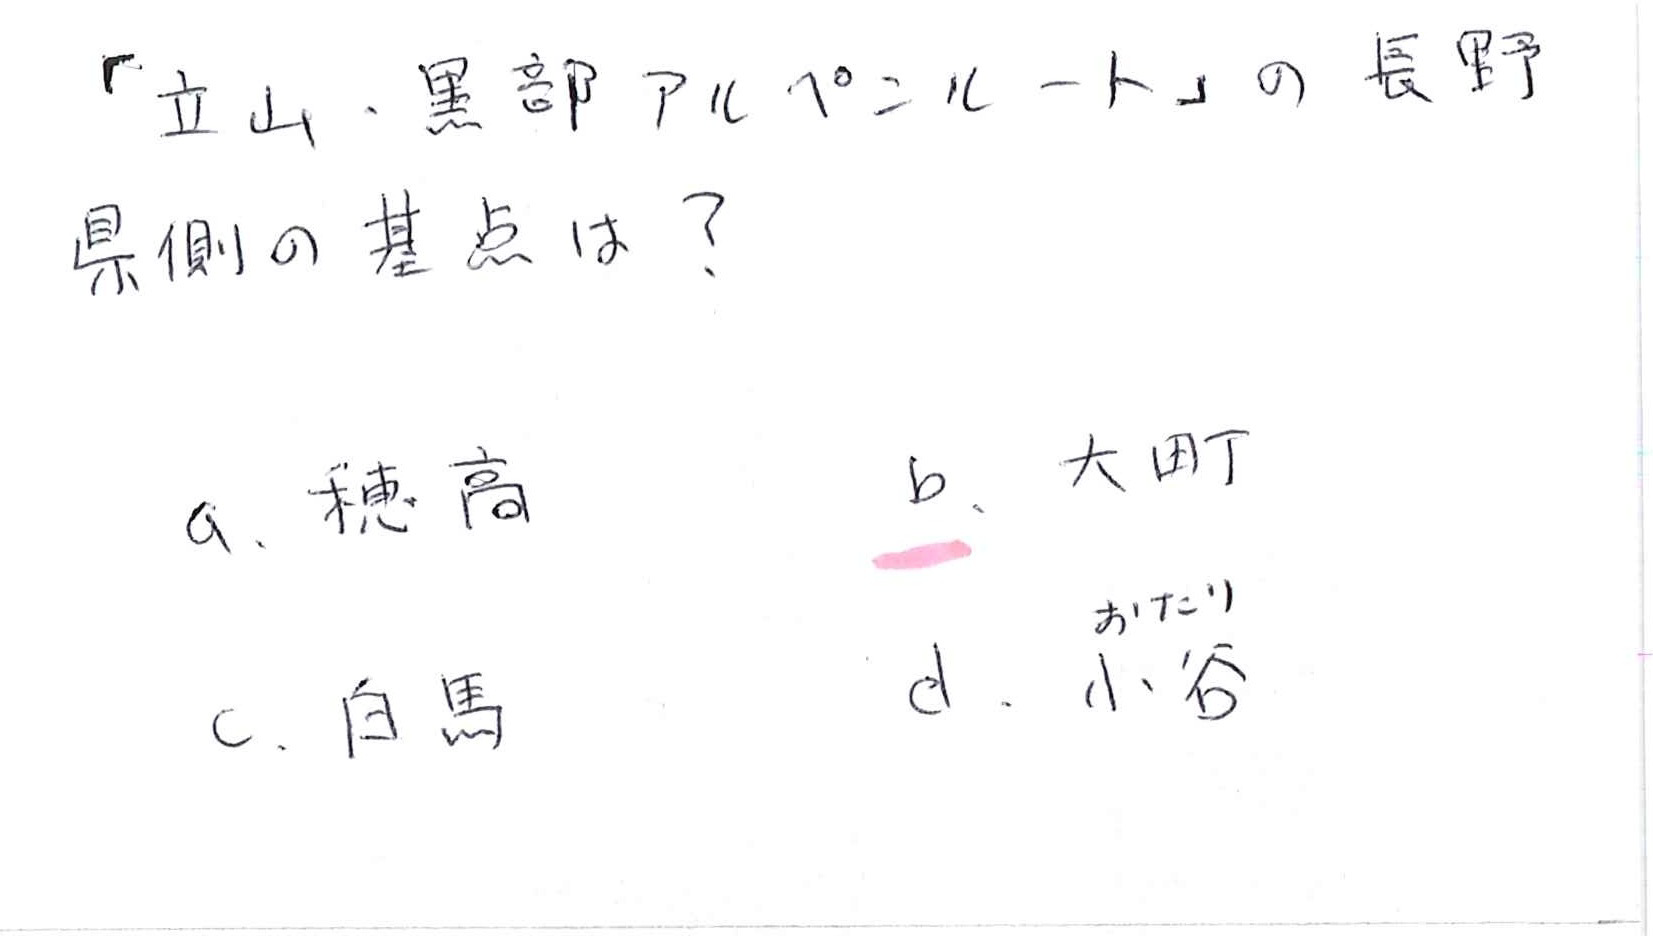 「立山・黒部アルペンルート」の長野
県側の基点は？
a. 穂高
b. 大町
c. 白馬
おたり
d. 小谷